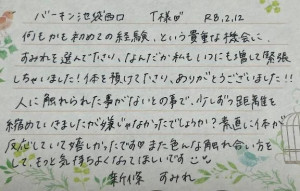 バーキン池袋西口 T様 R8.2.12
何もかも初めての経験、という貴重な機会に、
すみれを選んで下さり、なんだか私もいつにも増して緊張
しちゃいました!体を預けて下さり、ありがとうございました!!
人に触れられた事がないとの事で、少しずつ距離を
縮めていきましたが嫌じゃなかったでしょうか?素直に体が
反応していて嬉しかったです また色んな触れ合い方を
して、もっと気持ちよくなってほしいです
新條 すみれ